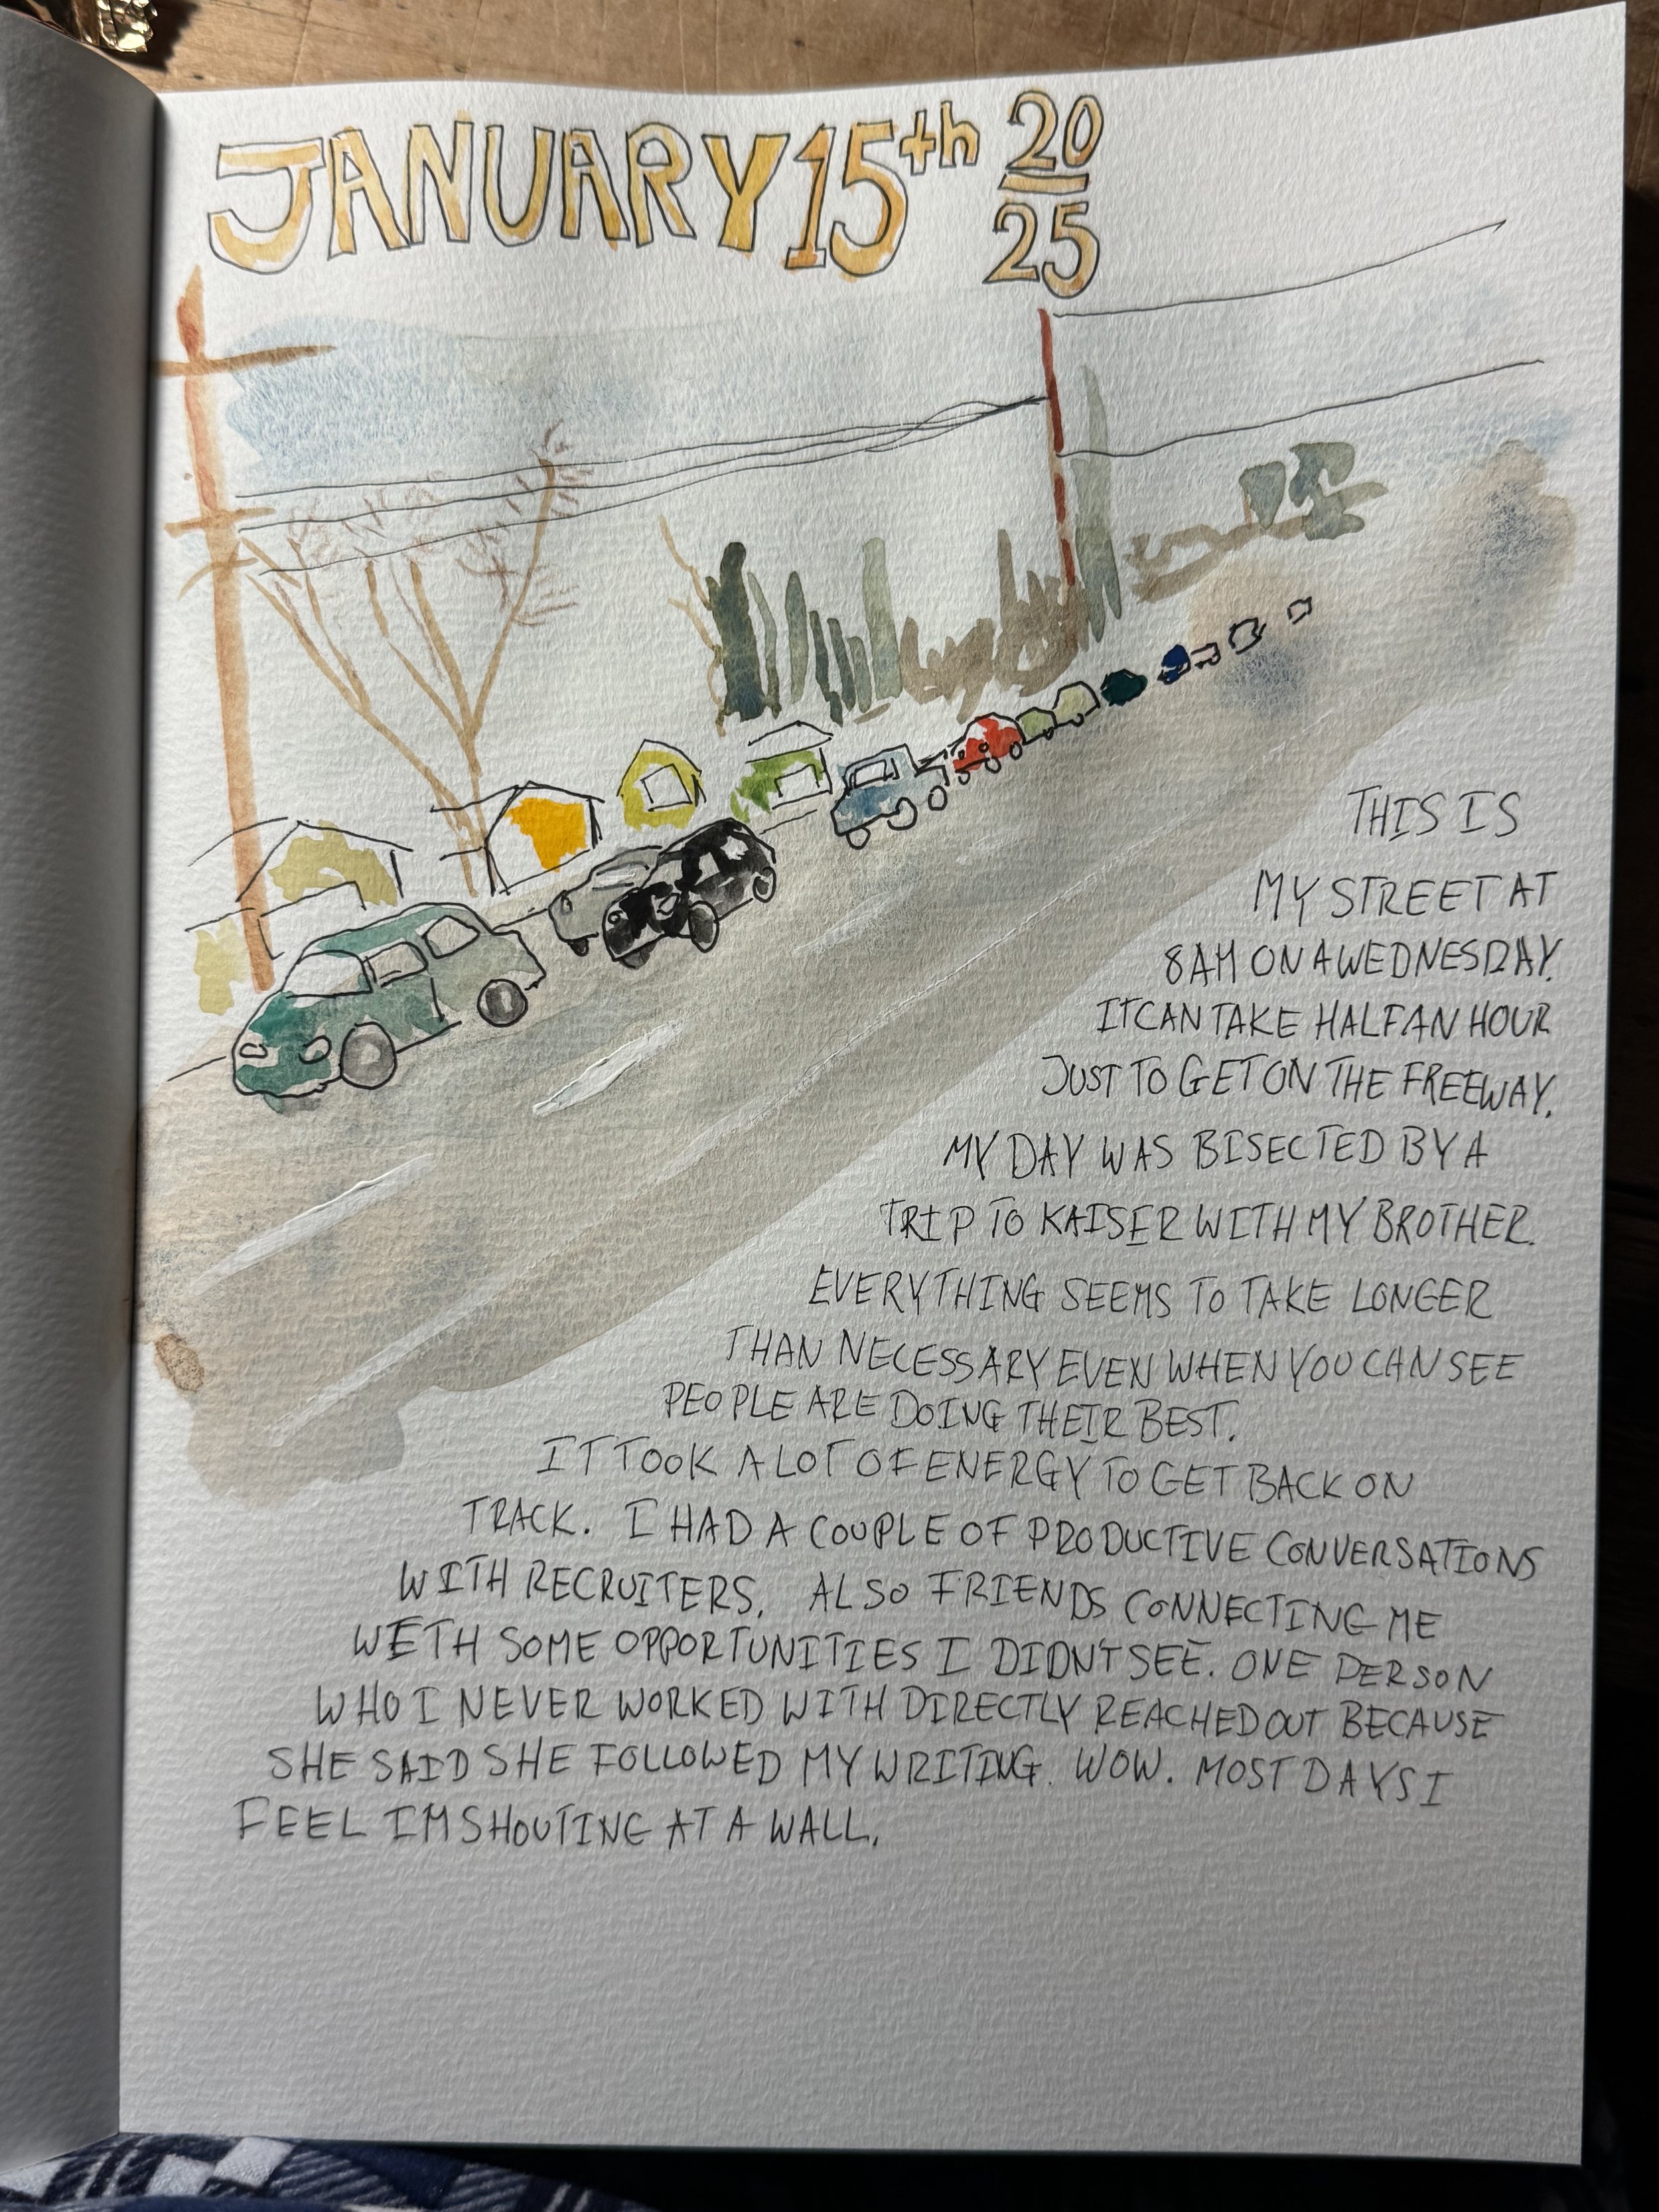 JANUARY 15th 20
25
THIS IS
MY STREET AT
8AM ON A WEDNESDAY.
IT CAN TAKE HALF AN HOUR
JUST TO GET ON THE FREEWAY.
MY DAY WAS BISECTED BY A
TRIP TO KAISER WITH MY BROTHER.
EVERYTHING SEEMS TO TAKE LONGER
THAN NECESSARY EVEN WHEN YOU CAN SEE
PEOPLE ARE DOING THEIR BEST.
IT TOOK A LOT OF ENERGY TO GET BACK ON
TRACK. I HAD A COUPLE OF PRODUCTIVE CONVERSATIONS
WITH RECRUITERS. ALSO FRIENDS CONNECTING ME
WETH SOME OPPORTUNITIES I DIDN'T SEE. ONE PERSON
WHO I NEVER WORKED WITH DIRECTLY REACHED OUT BECAUSE
SHE SAID SHE FOLLOWED MY WRITING. WOW. MOST DAYS I
FEEL IM SHOUTING AT A WALL.